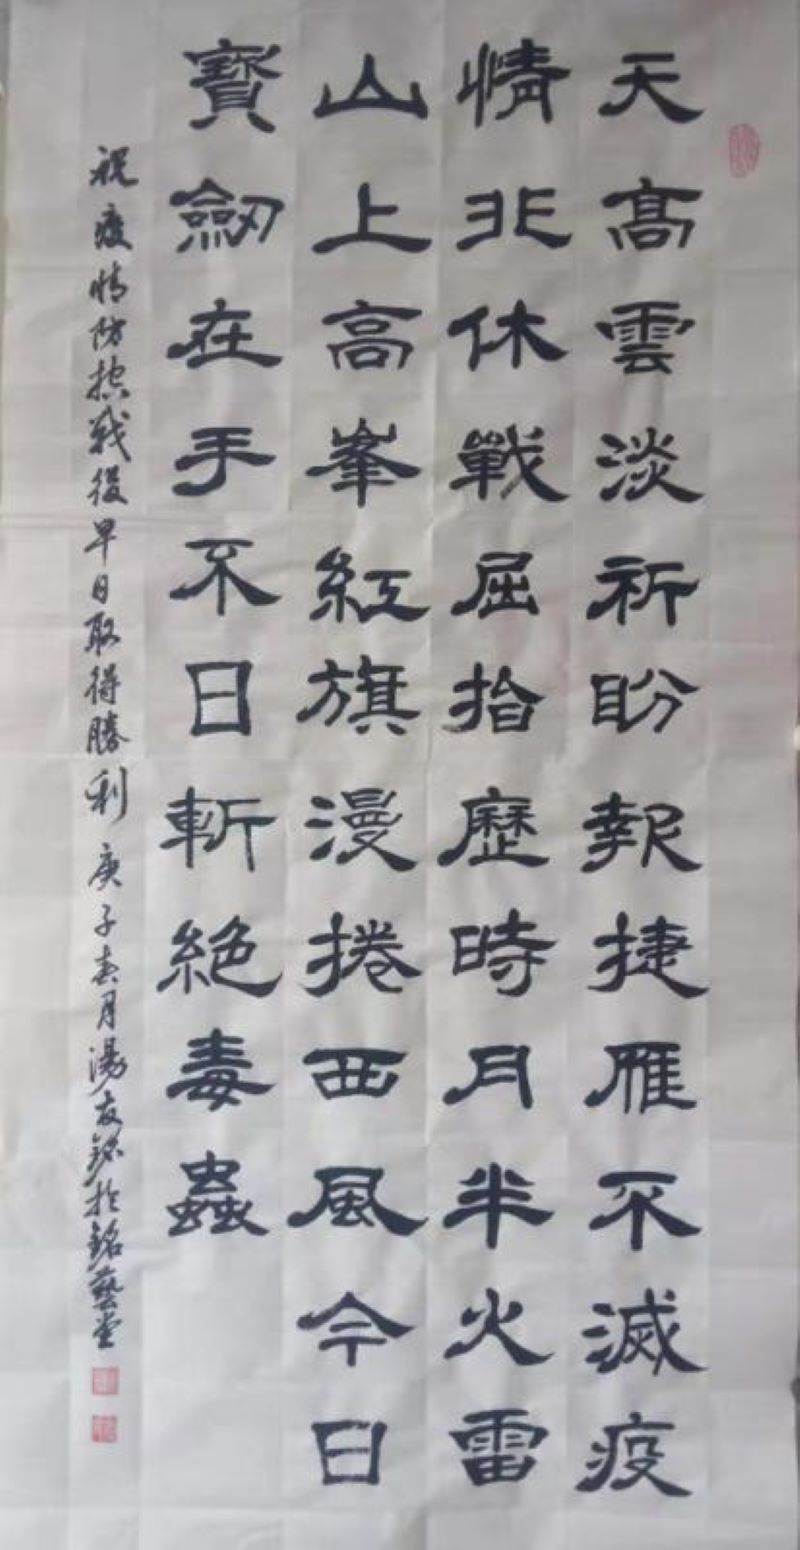 天高雲淡祈盼報捷雁不滅疫
情非休戰屈指歷時月半火雷
山上高峯紅旗漫捲西風今日
寶劔在手不日斬絕毒蟲
祝疫情防控战役早日取得勝利 庚子春月湯友銘於銘藝堂